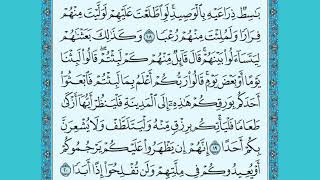 بَٰسِطٌ ذِرَاعَيْهِ بِٱلْوَصِيدِ ۚ لَوِ ٱطَّلَعْتَ عَلَيْهِمْ لَوَلَّيْتَ مِنْهُمْ
فِرَارًا وَلَمُلِئْتَ مِنْهُمْ رُعْبًا ١٨ وَكَذَٰلِكَ بَعَثْنَٰهُمْ
لِيَتَسَآءَلُوا۟ بَيْنَهُمْ ۚ قَالَ قَآئِلٌ مِّنْهُمْ كَمْ لَبِثْتُمْ ۖ قَالُوا۟ لَبِثْنَا
يَوْمًا أَوْ بَعْضَ يَوْمٍ ۚ قَالُوا۟ رَبُّكُمْ أَعْلَمُ بِمَا لَبِثْتُمْ فَٱبْعَثُوٓا۟
أَحَدَكُم بِوَرِقِكُمْ هَٰذِهِۦٓ إِلَى ٱلْمَدِينَةِ فَلْيَنظُرْ أَيُّهَآ أَزْكَىٰ
طَعَامًا فَلْيَأْتِكُم بِرِزْقٍ مِّنْهُ وَلْيَتَلَطَّفْ وَلَا يُشْعِرَنَّ
بِكُمْ أَحَدًا ١٩ إِنَّهُمْ إِن يَظْهَرُوا۟ عَلَيْكُمْ يَرْجُمُوكُمْ
أَوْ يُعِيدُوكُمْ فِى مِلَّتِهِمْ وَلَن تُفْلِحُوٓا۟ إِذًا أَبَدًا ٢٠